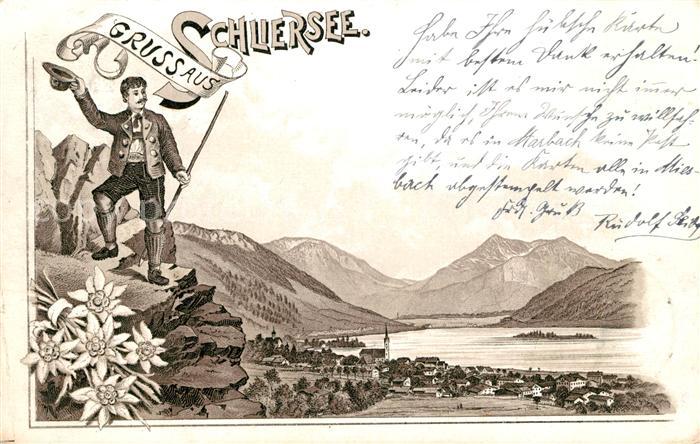 GRUSS AUS
SCHLIERSEE.
Habe Ihre hübsche Karte
mit bestem Dank erhalten.
Leider ist es mir nicht immer
möglich, Ihrem Wunsche zu willfah-
ren, da es in Marbach keine Post
gibt, und die Karten alle in Mies-
bach abgestempelt werden!
Gruß
Rudolf